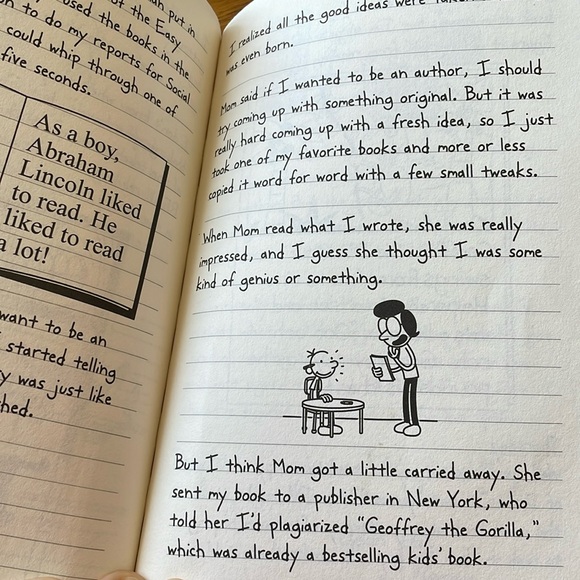 put in
of the Easy
used the books in the
to do my reports for Social
could whip through one of
five seconds.
As a boy,
Abraham
Lincoln liked
to read. He
liked to read
a lot!
want to be an
started telling
was just like
I realized all the good ideas were
was even born.
Mom said if I wanted to be an author, I should
try coming up with something original. But it was
really hard coming up with a fresh idea, so I just
took one of my favorite books and more or less
copied it word for word with a few small tweaks.
When Mom read what I wrote, she was really
impressed, and I guess she thought I was some
kind of genius or something.
But I think Mom got a little carried away. She
sent my book to a publisher in New York, who
told her I'd plagiarized "Geoffrey the Gorilla,"
which was already a bestselling kids' book.